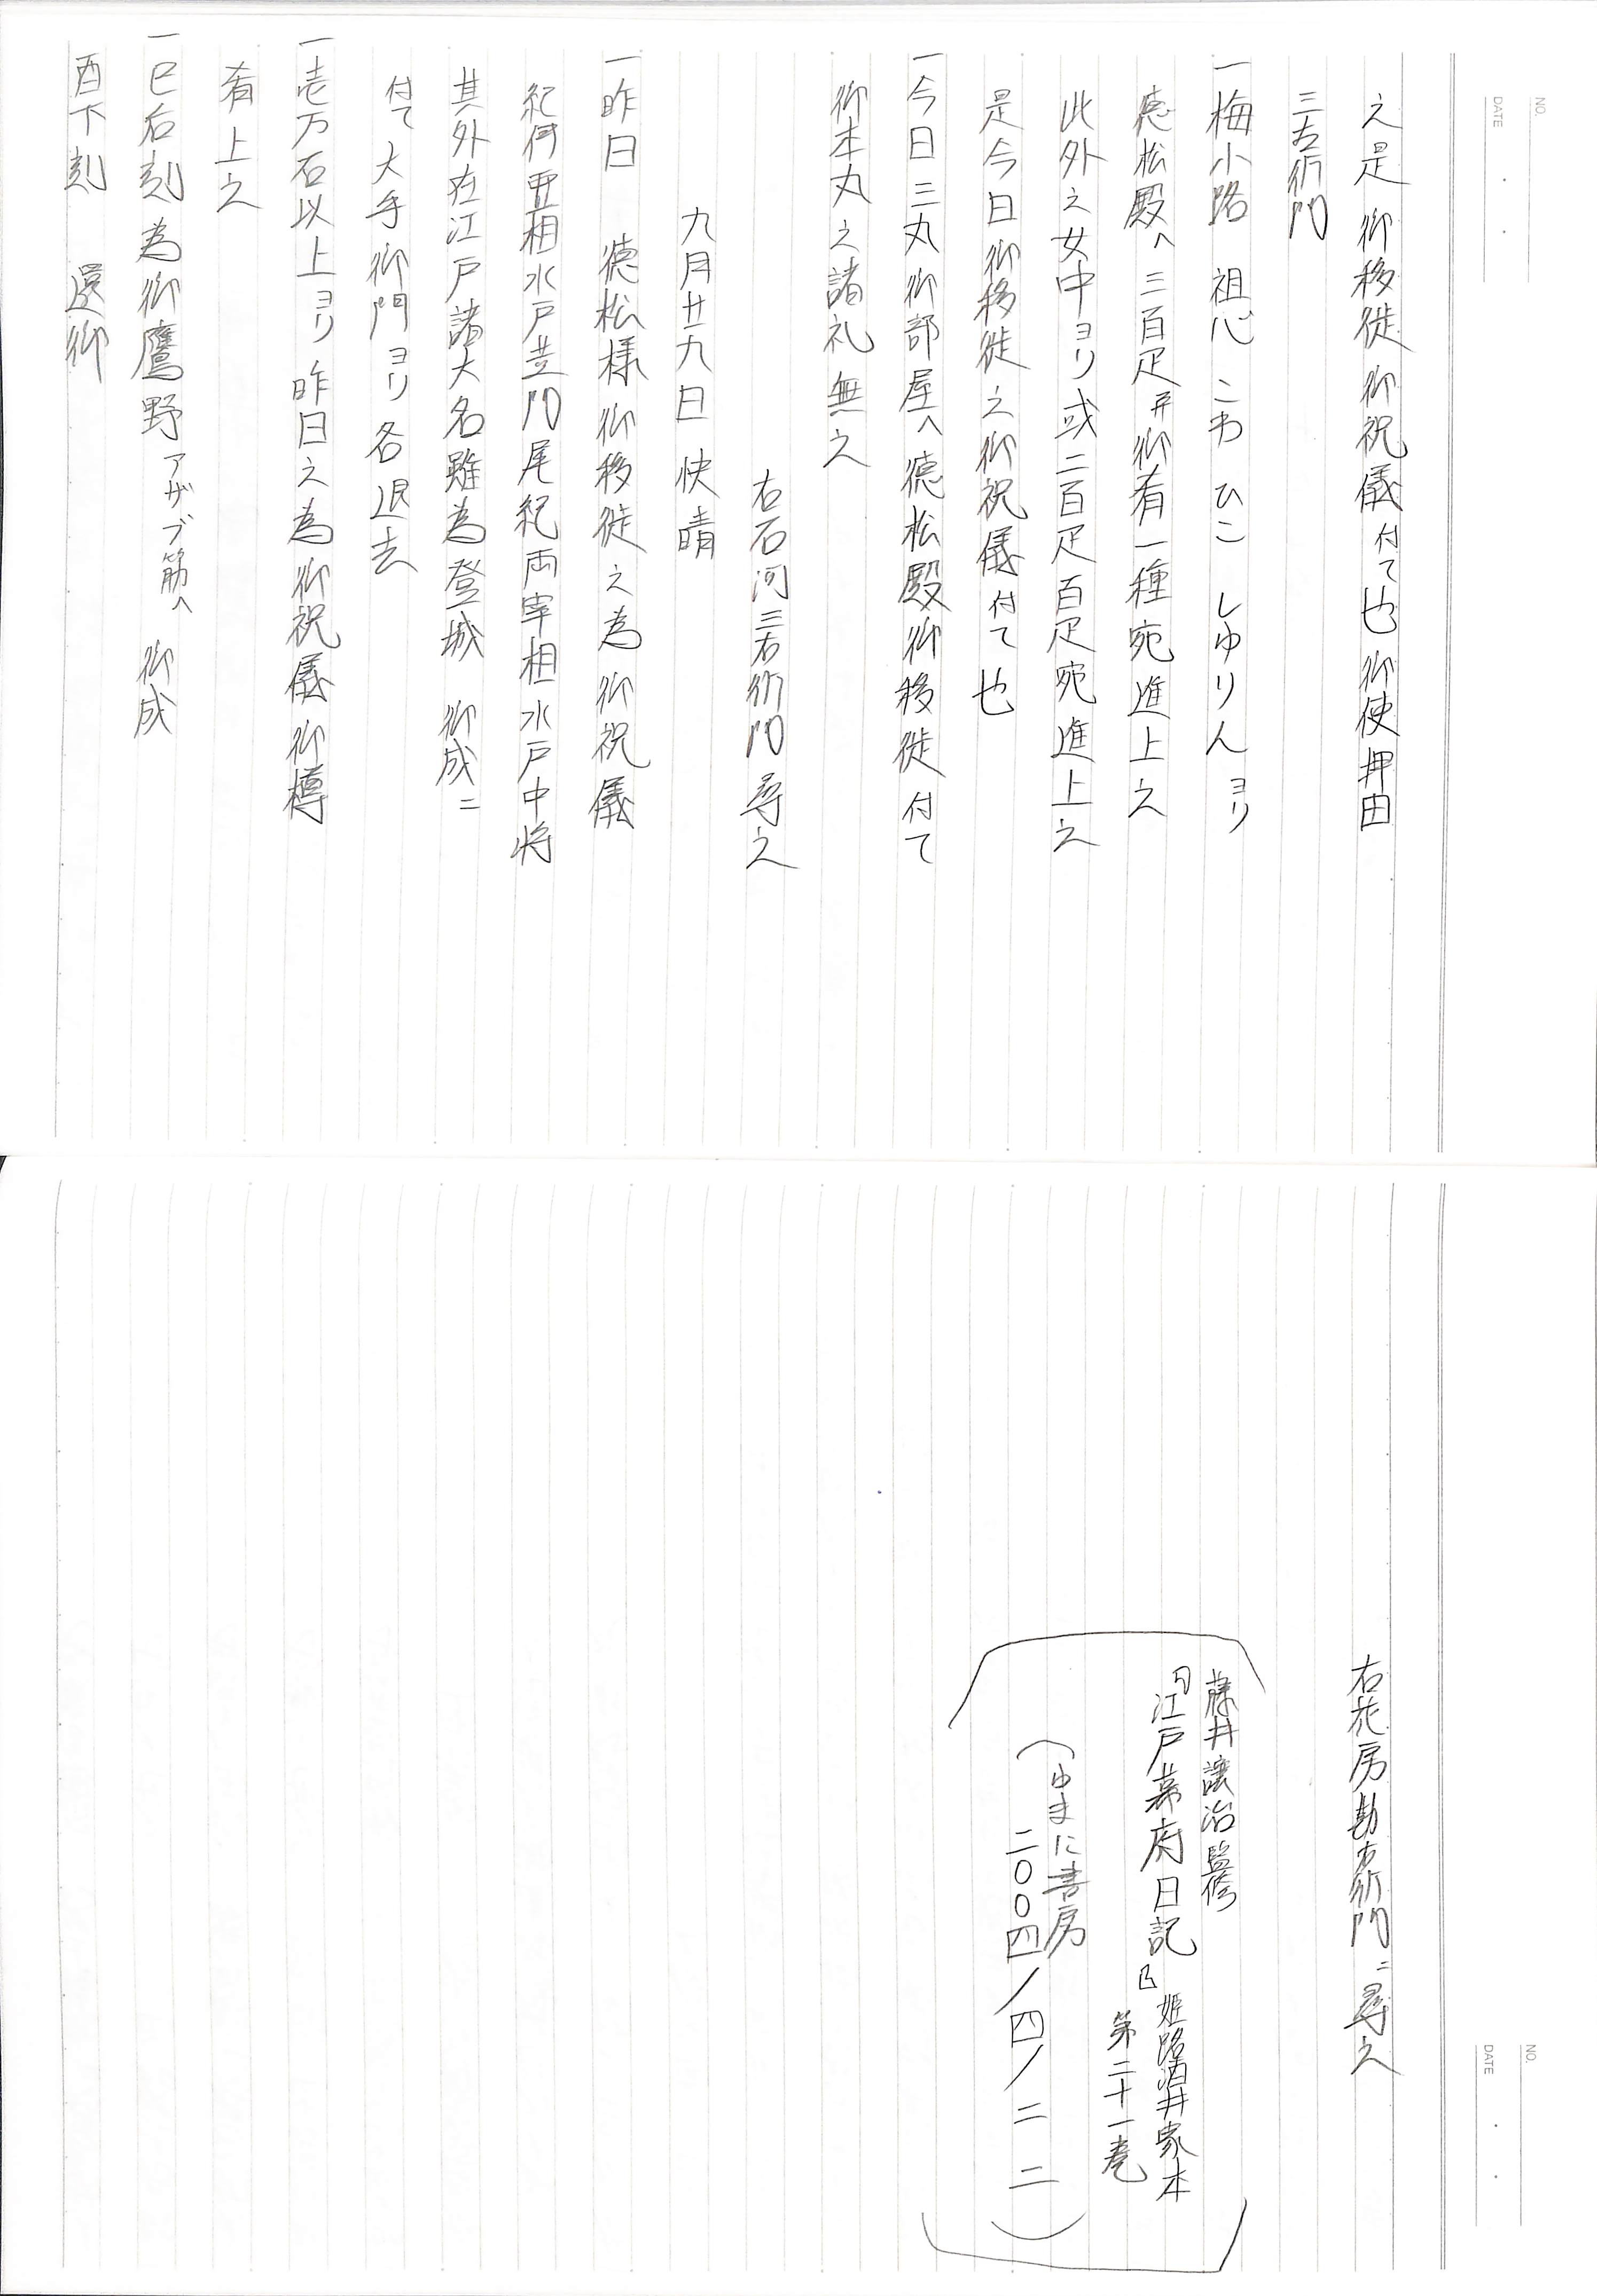 之是 御移徙 御祝儀付て也 御使押田
三左衛門
一梅小路 祖心 こわ ひこ しゆりん ヨリ
徳松殿へ三百疋并御肴一種宛進上之
此外之女中ヨリ或二百疋百疋宛進上之
是今日御移徙之御祝儀付て也
一今日三丸御部屋へ徳松殿御移徙付て
御本丸之諸礼無之
右石河三右衛門尋之
九月廿九日 快晴
一昨日 徳松様御移徙之為御祝儀
紀伊亜相水戸黄門尾紀両宰相水戸中将
其外在江戸諸大名雖為登城 御成ニ
付て大手御門ヨリ各退去
一壱万石以上ヨリ昨日之為御祝儀御樽
肴上之
一巳后刻為御鷹野アザブ筋へ 御成
酉下刻 還御
右花房勘右衛門ニ尋之
藤井讓治監修
『江戸幕府日記』姫路酒井家本
第二十一巻
(ゆまに書房
二〇〇四/四/二二)
NO.
DATE
NO.
DATE